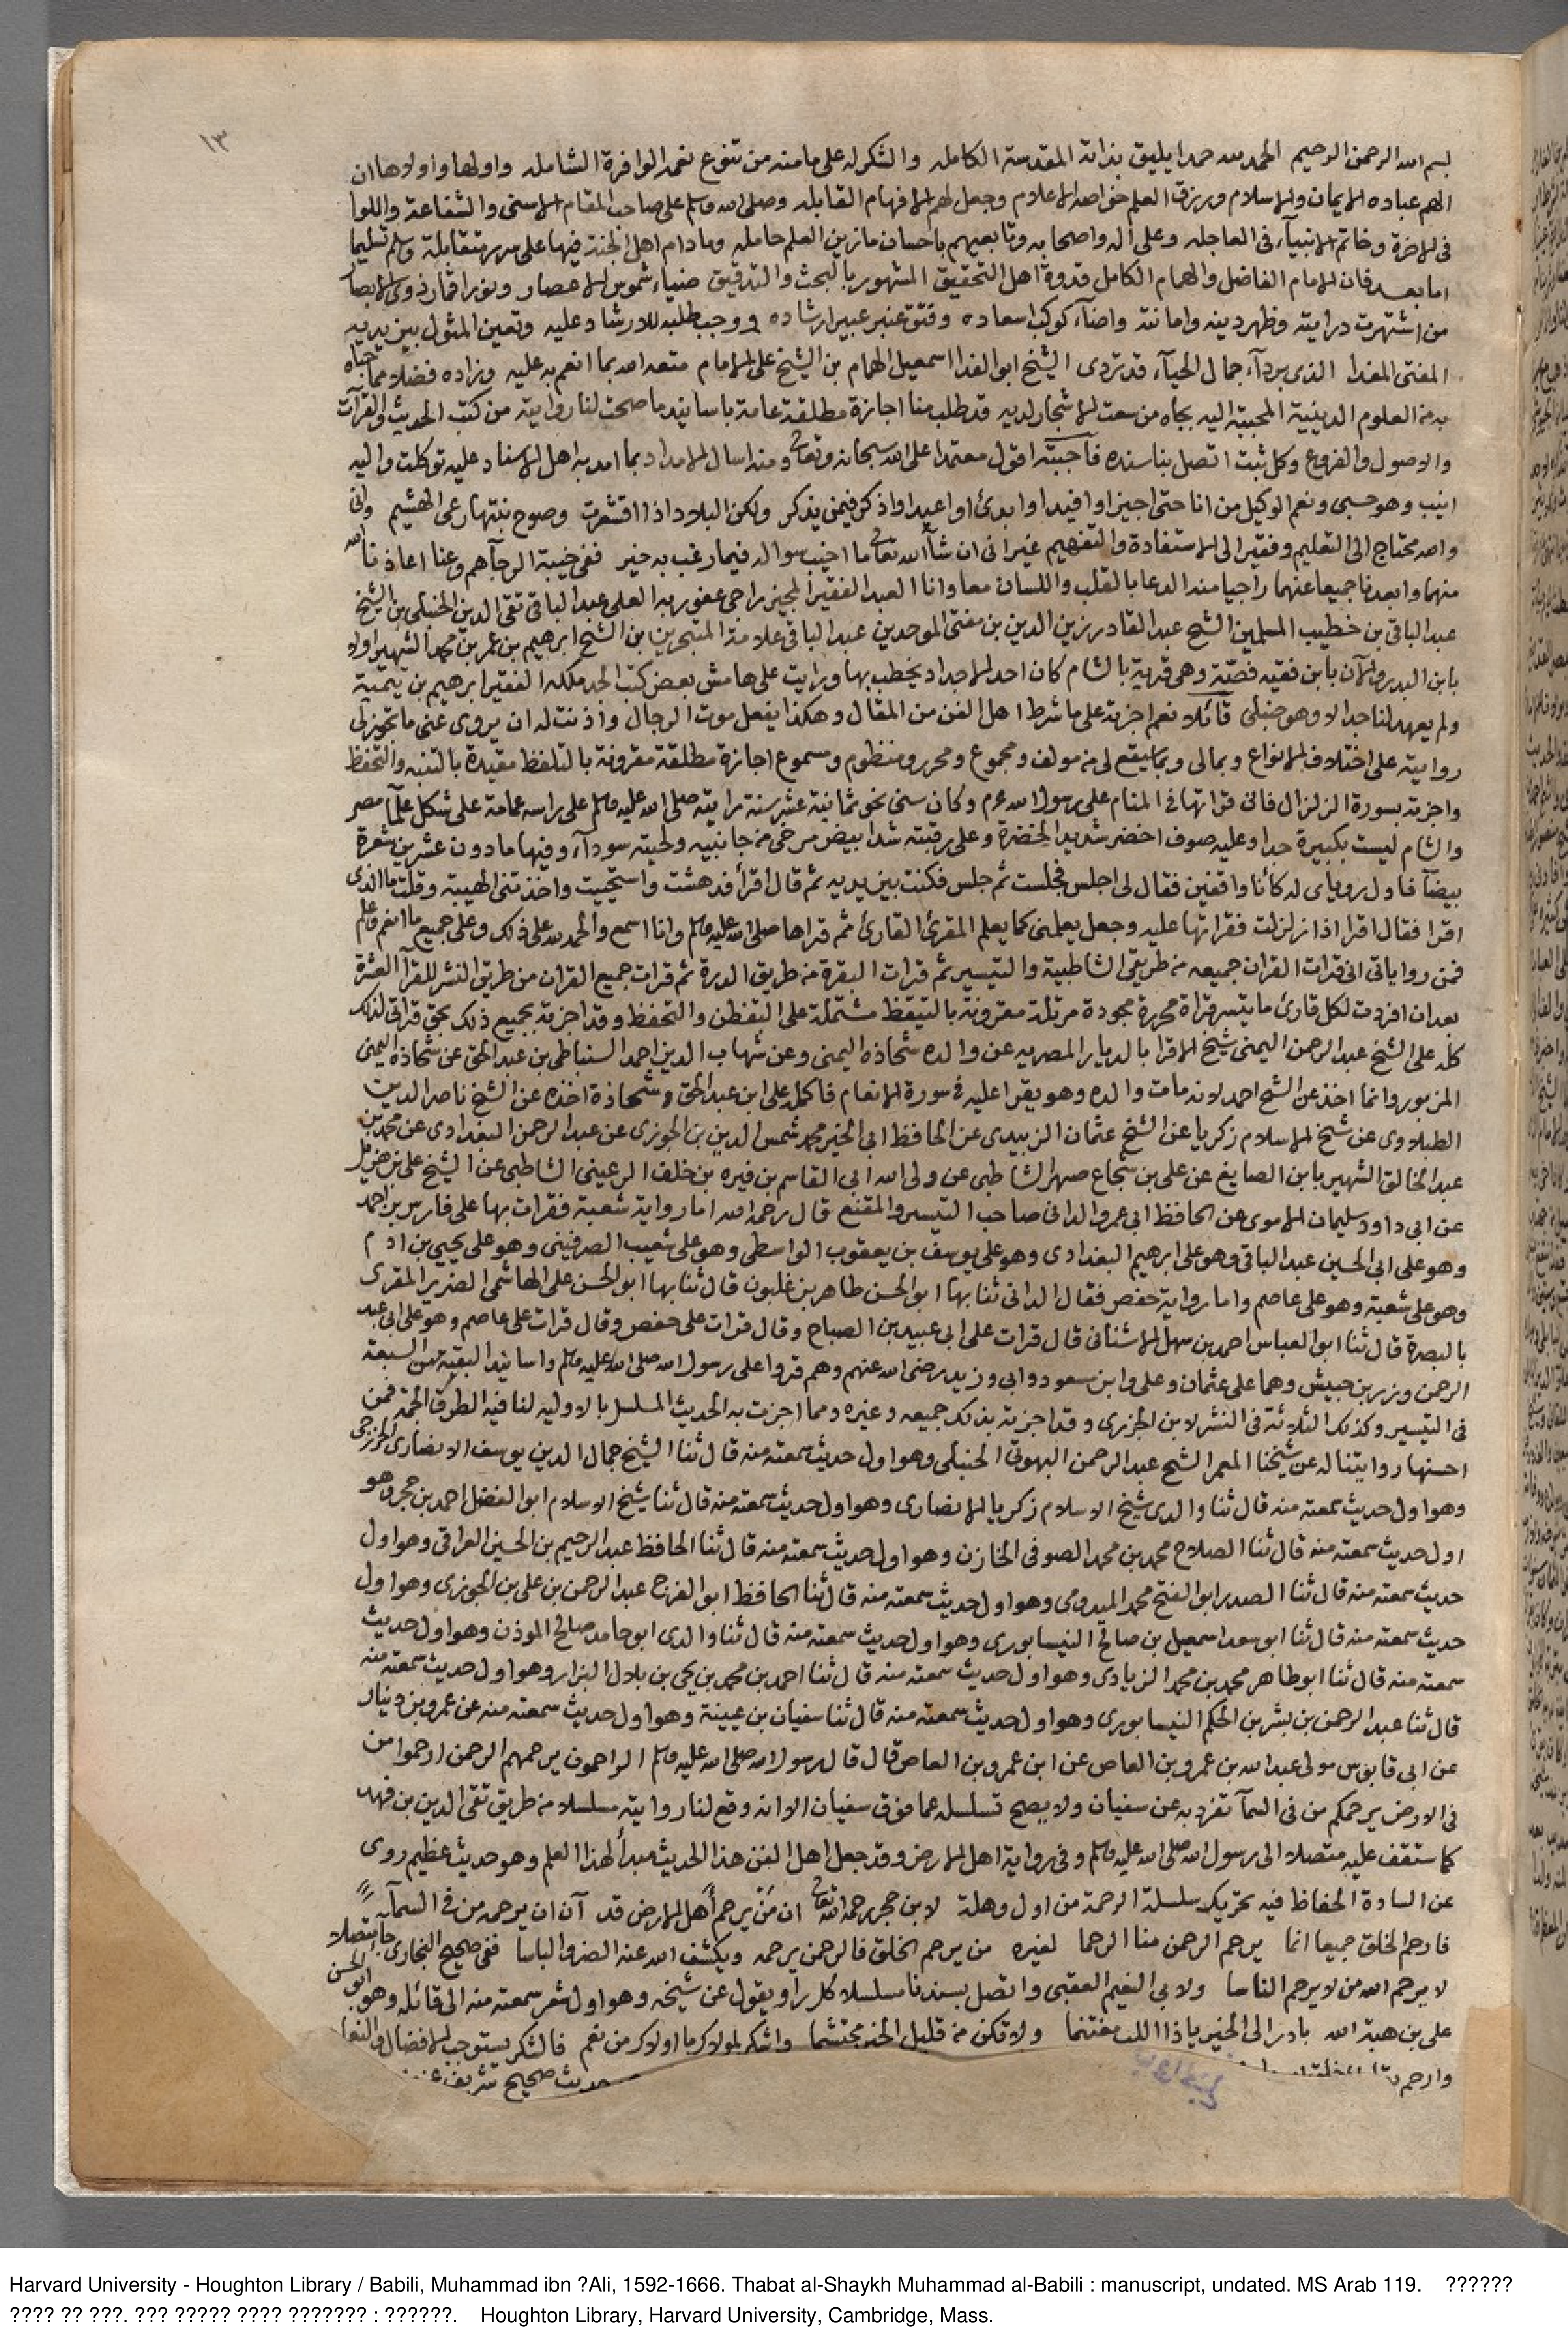 ١٣
بسم الله الرحمن الرحيم الحمد لله حمدا يليق بذاته المقدسة الكامله والشكر له على ما منه من تنوع نعمه الوافرة الشامله واولها واولاها ان
الهم عباده الايمان والاسلام ورزق العلم خواصه الاعلام وجعل لهم الافهام القابله وصلى الله وسلم على صاحب المقام الاسنى والشفاعة واللوا
فى الاخرة وخاتم الانبيآء فى العاجله وعلى اله واصحابه وتابعيهم باحسان ما زين العلم حامله وما دام اهل الجنة فيها على سرر متقابلة وسلم تسليما
اما بعد فان الامام الفاضل والهمام الكامل قدوة اهل التحقيق المشهور بالبحث والتدقيق ضياء شموس الاعصار ونور اقمار ذوى الابصار
من اشتهرت درايته وظهر دينه وامانته واضآء كوكب اسعاده وفتق عنبر عبير ارشاده ووجب طلبه للارشاد عليه وتعين المثول بين يديه
المفتى المفدا الذى بردآء جمال الحيآء قد تردى الشيخ ابو الفدا اسمعيل الهمام بن الشيخ على الامام متعه الله بما انعم به عليه وزاده فضلا مما حباه
به من العلوم الدينية المحببة اليه بجاه من سعت الاشجار لديه قد طلب منا اجازة مطلقة عامة باسانيد ما صحت لنا روايته من كتب الحديث والقرآت
والاصول والفروع وكل ثبت اتصل بنا سنده فاجبته اقول معتمدا على الله سبحانه وتعالى ومنه اسال الامداد بما امد به اهل الاسناد عليه توكلت واليه
انيب وهو حسبى ونعم الوكيل من انا حتى اجيز او افيد او ابدئ او اعيد او اذكر فيمن يذكر ولكن البلاد اذا اقشعرت وصوح نبتها رعى الهشيم وانى
والله محتاج الى التعليم وفقير الى الاستفادة والتفهيم غير انى ان شآء الله تعالى ما اخيب سواله فيما رغب به خير ففى خيبة الرجآ هم وعنا اعاذنا الله
منهما وابعدنا جميعا عنهما راجيا منه الدعا بالقلب واللسان معا وانا العبد الفقير المجيز راجى عفو ربه العلى عبد الباقى تقى الدين الحنبلى بن الشيخ
عبد الباقى بن خطيب المسلمين الشيخ عبد القادر زين الدين بن مفتى الموحدين عبد الباقى علامة المتبحرين بن الشيخ ابرهيم بن عمر بن محمد الشهير اولا
بابن البدر والآن بابن فقيه فصّه وهى قرية بالشام كان احد الاجداد يخطب بها ورايت على هامش بعض كتب الجد ملكه الفقير ابرهيم بن تيمية
ولم يعهد لنا جد الا وهو حنبلى قائلا نعم اجزته على ما شرط اهل الفن من المقال وهكذا يفعل موت الرجال واذنت له ان يروى عنى ما تجوز لى
روايته على اختلاف الانواع وبمالى وبما يقع لى من مولف ومجموع ومحرر ومنظوم ومسموع اجازة مطلقة مقرونة بالتلفظ مقيدة بالتنبه والتحفظ
واجزته بسورة الزلزال فانى قراتها فى المنام على رسول الله وكان سنى نحو ثمانية عشر سنة رايته صلى الله عليه وسلم على راسه عمامة على شكل علمآ مصر
والشام ليست بكبيرة جدا وعليه صوف اخضر شديد الخضرة وعلى رقبته شد ابيض مرخى من جانبيه ولحيته سودآء وفيها ما دون عشرين شعرة
بيضآ فاول روياى له كأنا واقفين فقال لى اجلس فجلست ثم جلس فكنت بين يديه ثم قال اقرأ فدهشت واستحييت واخذتنى الهيبة وقلت ما الذى
اقرا فقال اقرا اذا زلزلت فقراتها عليه وجعل يعلمنى كما يعلم المقرئ القارئ ثم قراها صلى الله عليه وسلم وانا اسمع والحمد لله على ذلك وعلى جميع ما انعم وعلم
فمن رواياتى انى قرات القران جميعه من طريقى الشاطبية والتيسير ثم قرات البقرة من طريق الدرة ثم قرات جميع القران من طريق النشر للقرآ العشرة
بعد ان افردت لكل قارئ ما يتيسر قراة محررة مجودة مرتلة مقرونة بالتيقظ مشتملة على التفطن والتحفظ وقد اجزته بجميع ذلك بحق قراتى لذلك
كله على الشيخ عبد الرحمن اليمنى شيخ الاقرا بالديار المصريه عن والده شحاذه اليمنى وعن شهاب الدين احمد السنباطى بن عبد الحق عن شحاذه اليمنى
المزبور وانما اخذ عن الشيخ احمد لانه مات والده وهو يقرا عليه فى سورة الانعام فاكمل على ابن عبد الحق وشحاذة اخذه عن الشيخ ناصر الدين
الطبلاوى عن شيخ الاسلام زكريا عن الشيخ عثمان الزبيدى عن الحافظ ابى الخير محمد شمس الدين بن الجوزى عن عبد الرحمن البغدادى عن محمد بن
عبد الخالق الشهير بابن الصايغ عن على بن شجاع صهر الشاطبى عن ولى الله ابى القاسم بن فيره بن خلف الرعينى الشاطبى عن الشيخ على بن هذيل
عن ابى داود سليمان الاموى عن الحافظ ابى عمرو الدانى صاحب التيسير والمقنع قال رحمه الله اما رواية شعبة فقرات بها على فارس بن احمد
وهو على ابى الحسين عبد الباقى وهو على ابرهيم البغدادى وهو على يوسف بن يعقوب الواسطى وهو على شعيب الصرفينى وهو على يحيى بن ادم
وهو على شعبة وهو على عاصم واما رواية حفص فقال الدانى ثنا بها ابو الحسن طاهر بن غلبون قال ثنا بها ابو الحسن على الهاشمى الضرير المقرى
بالبصرة قال ثنا ابو العباس احمد بن سهل الاشنانى قال قرات على ابى عبيد بن الصباح وقال قرات على حفص وقال قرات على عاصم وهو على ابى عبد
الرحمن وزر بن حبيش وهما على عثمان وعلى وابن سعود وابى وزيد رضى الله عنهم وهم قروا على رسول الله صلى الله عليه وسلم واسانيد البقية من السبعة
فى التيسير وكذلك الثلاثة فى النشر لابن الجزرى وقد اجزته بذلك جميعه وغيره ومما اجزت به الحديث المسلسل بالاوليه لنا فيه الطرق الجمة فمن
احسنها روايتنا له عن شيخنا المعمر الشيخ عبد الرحمن البهوتى الحنبلى وهو اول حديث سمعته منه قال ثنا الشيخ جمال الدين يوسف الانصارى الخزرجى
وهو اول حديث سمعته منه قال ثنا والدى شيخ الاسلام زكريا الانصارى وهو اول حديث سمعته منه قال ثنا شيخ الاسلام ابو الفضل احمد بن حجر وهو
اول حديث سمعته منه قال ثنا الصلاح محمد بن محمد الصوفى الخازن وهو اول حديث سمعته منه قال ثنا الحافظ عبد الرحيم بن الحسين العراقى وهو اول
حديث سمعته منه قال ثنا الصدر ابو الفتح محمد الميدومى وهو اول حديث سمعته منه قال ثنا الحافظ ابو الفرج عبد الرحمن بن على بن الجوزى وهو اول
حديث سمعته منه قال ثنا ابو سعد اسمعيل بن صالح النيسابورى وهو اول حديث سمعته منه قال ثنا والدى ابو حامد صالح الموذن وهو اول حديث
سمعته منه قال ثنا ابو طاهر محمد بن محمد الزيادى وهو اول حديث سمعته منه قال ثنا احمد بن محمد بن يحى بن بلال البزار وهو اول حديث سمعته منه
قال ثنا عبد الرحمن بن بشر بن الحكم النيسابورى وهو اول حديث سمعته منه قال ثنا سفيان بن عيينة وهو اول حديث سمعته منه عن عمرو بن دينار
عن ابى قابوس مولى عبد الله بن عمرو بن العاص عن ابن عمرو بن العاص قال قال رسول الله صلى الله عليه وسلم الراحمون يرحمهم الرحمن ارحموا من
فى الارض يرحمكم من فى السمآ تفرد به عن سفيان ولا يصح تسلسله عما فوق سفيان الا انه وقع لنا روايته مسلسلا من طريق تقى الدين بن فهد
كما ستقف عليه متصلا الى رسول الله صلى الله عليه وسلم وفى رواية اهل الارض وقد جعل اهل الفن هذا الحديث مبدأ لهذا العلم وهو حديث عظيم روى
عن السادة الحفاظ فيه تحريك سلسلة الرحمة من اول وهلة لابن حجر رحمه الله تعالى ان من يرحم أهل الارض قد آن ان يرحمه من فى السمآء
فارحم الخلق جميعا انما يرحم الرحمن منا الرحما لغيره من يرحم الخلق فالرحمن يرحمه ويكشف الله عنه الضر والباسا ففى صحيح البخارى جا متصلا
لا يرحم الله من لا يرحم الناسا ولابى النعيم العقبى واتصل بسندنا مسلسلا كل راو يقول عن شيخه وهو اول شعر سمعته منه الى قائله وهو ابو الحسن
على بن هبة الله بادر الى الخير يا ذا اللب مغتنما ولا تكن من قليل الخير محتشما واشكر لمولاك ما اولاك من نعم فالشكر يستوجب الافضال والنعما
وارحم حديث صحيح شريف
Harvard University - Houghton Library / Babili, Muhammad ibn ?Ali, 1592-1666. Thabat al-Shaykh Muhammad al-Babili : manuscript, undated. MS Arab 119. ??????
???? ?? ???. ??? ????? ???? ??????? : ??????. Houghton Library, Harvard University, Cambridge, Mass.